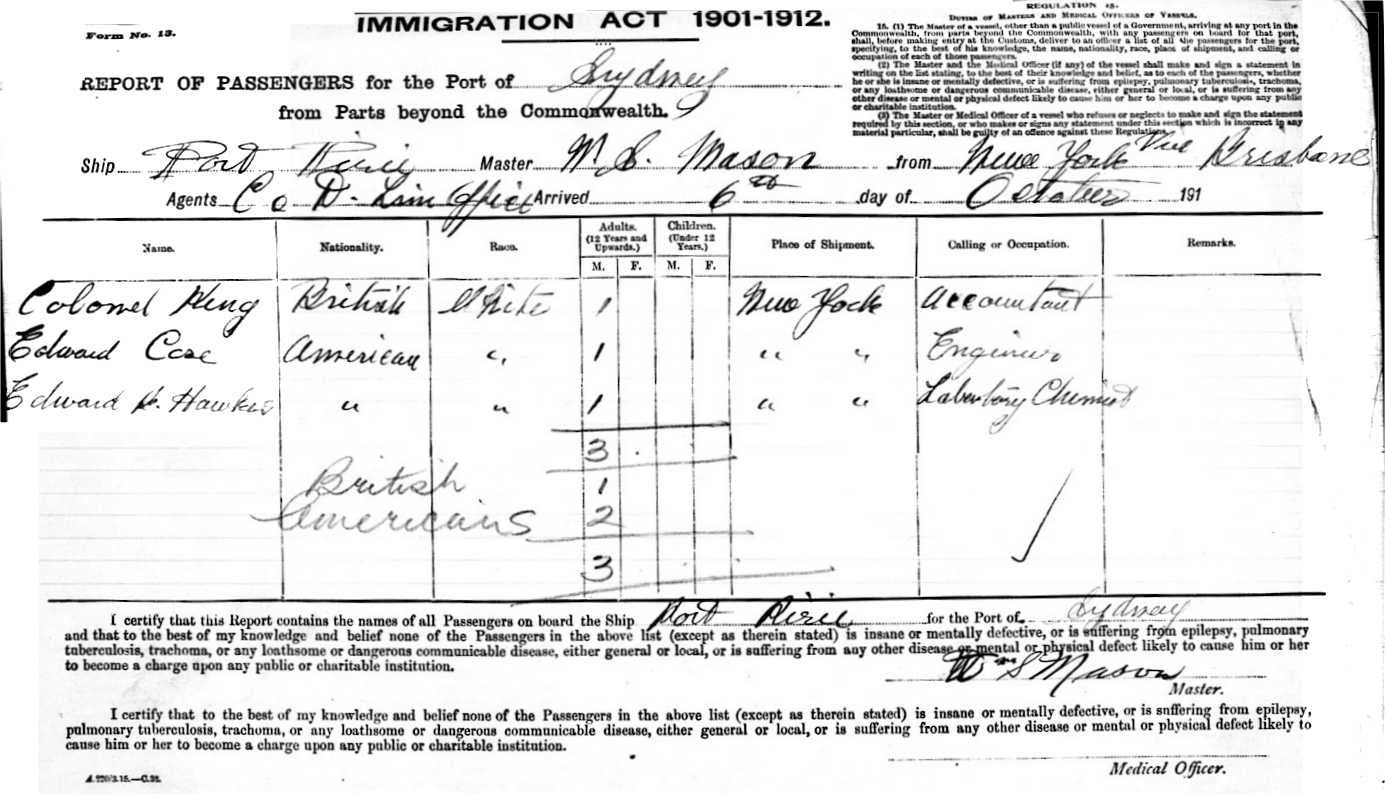 Form No. 13.
IMMIGRATION ACT 1901-1912.
REPORT OF PASSENGERS for the Port of Sydney
from Parts beyond the Commonwealth.
REGULATION 15.
DUTIES OF MASTERS AND MEDICAL OFFICERS OF VESSELS.
15. (1) The Master of a vessel, other than a public vessel of a Government, arriving at any port in the
Commonwealth, from parts beyond the Commonwealth, with any passengers on board for that port,
shall, before making entry at the Customs, deliver to an officer a list of all the passengers for the port,
specifying, to the best of his knowledge, the name, nationality, race, place of shipment, and calling or
occupation of each of those passengers.
(2) The Master and the Medical Officer (if any) of the vessel shall make and sign a statement in
writing on the list stating, to the best of their knowledge and belief, as to each of the passengers, whether
he or she is insane or mentally defective, or is suffering from epilepsy, pulmonary tuberculosis, trachoma,
or any loathsome or dangerous communicable disease, either general or local, or is suffering from any
other disease or mental or physical defect likely to cause him or her to become a charge upon any public
or charitable institution.
(3) The Master or Medical Officer of a vessel who refuses or neglects to make and sign the statement
required by this section, or who makes or signs any statement under this section which is incorrect in any
material particular, shall be guilty of an offence against these Regulations.
Ship Port Pirie Master W. S. Mason from New York Via Brisbane
Agents C & D. Line Office Arrived 6th day of October 191
Name. Nationality. Race. Adults. (12 Years and Upwards.) Children. (Under 12 Years.) Place of Shipment. Calling or Occupation. Remarks.
M. F. M. F.
Colonel King British White 1 New York Accountant
Edward Case American " 1 " " Engineer
Edward Hawkes " " 1 " " Laboratory Chemist
3
British 1
Americans 2
3
I certify that this Report contains the names of all Passengers on board the Ship Port Pirie for the Port of Sydney
and that to the best of my knowledge and belief none of the Passengers in the above list (except as therein stated) is insane or mentally defective, or is suffering from epilepsy, pulmonary
tuberculosis, trachoma, or any loathsome or dangerous communicable disease, either general or local, or is suffering from any other disease or mental or physical defect likely to cause him or her
to become a charge upon any public or charitable institution.
Wm S Mason
Master.
I certify that to the best of my knowledge and belief none of the Passengers in the above list (except as therein stated) is insane or mentally defective, or is suffering from epilepsy,
pulmonary tuberculosis, trachoma, or any loathsome or dangerous communicable disease, either general or local, or is suffering from any other disease or mental or physical defect likely to
cause him or her to become a charge upon any public or charitable institution.
Medical Officer.